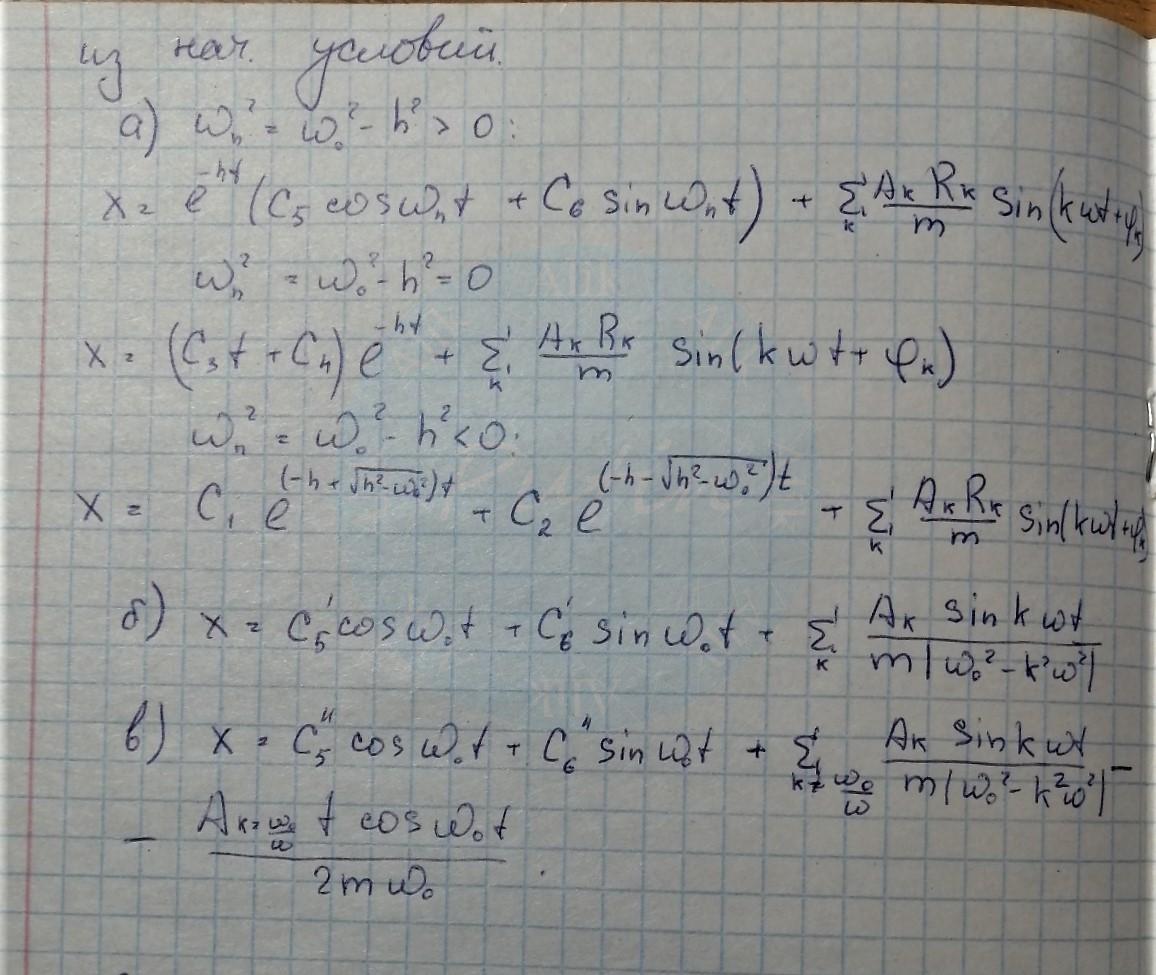 из нач. условий.
а) ω_h² = ω₀² - h² > 0:
x = e^{-ht} (C₅ cosω_h t + C₆ sin ω_h t) + Σ_k A_k R_k / m sin(kωt+φ_k)
ω_h² = ω₀² - h² = 0
x = (C₃t + C₄) e^{-ht} + Σ_k A_k R_k / m sin(kωt + φ_k)
ω_h² = ω₀² - h² < 0:
x = C₁ e^{(-h+√(h²-ω₀²))t} + C₂ e^{(-h-√(h²-ω₀²))t} + Σ_k A_k R_k / m sin(kωt+φ_k)
б) x = C₅' cos ω₀t + C₆' sin ω₀t + Σ_k A_k sin kωt / m|ω₀² - k²ω²|
в) x = C₅'' cos ω₀t + C₆'' sin ω₀t + Σ_{k≠ω₀/ω} A_k sin kωt / m|ω₀² - k²ω²| -
- A_{k=ω₀/ω} t cos ω₀t / 2mω₀